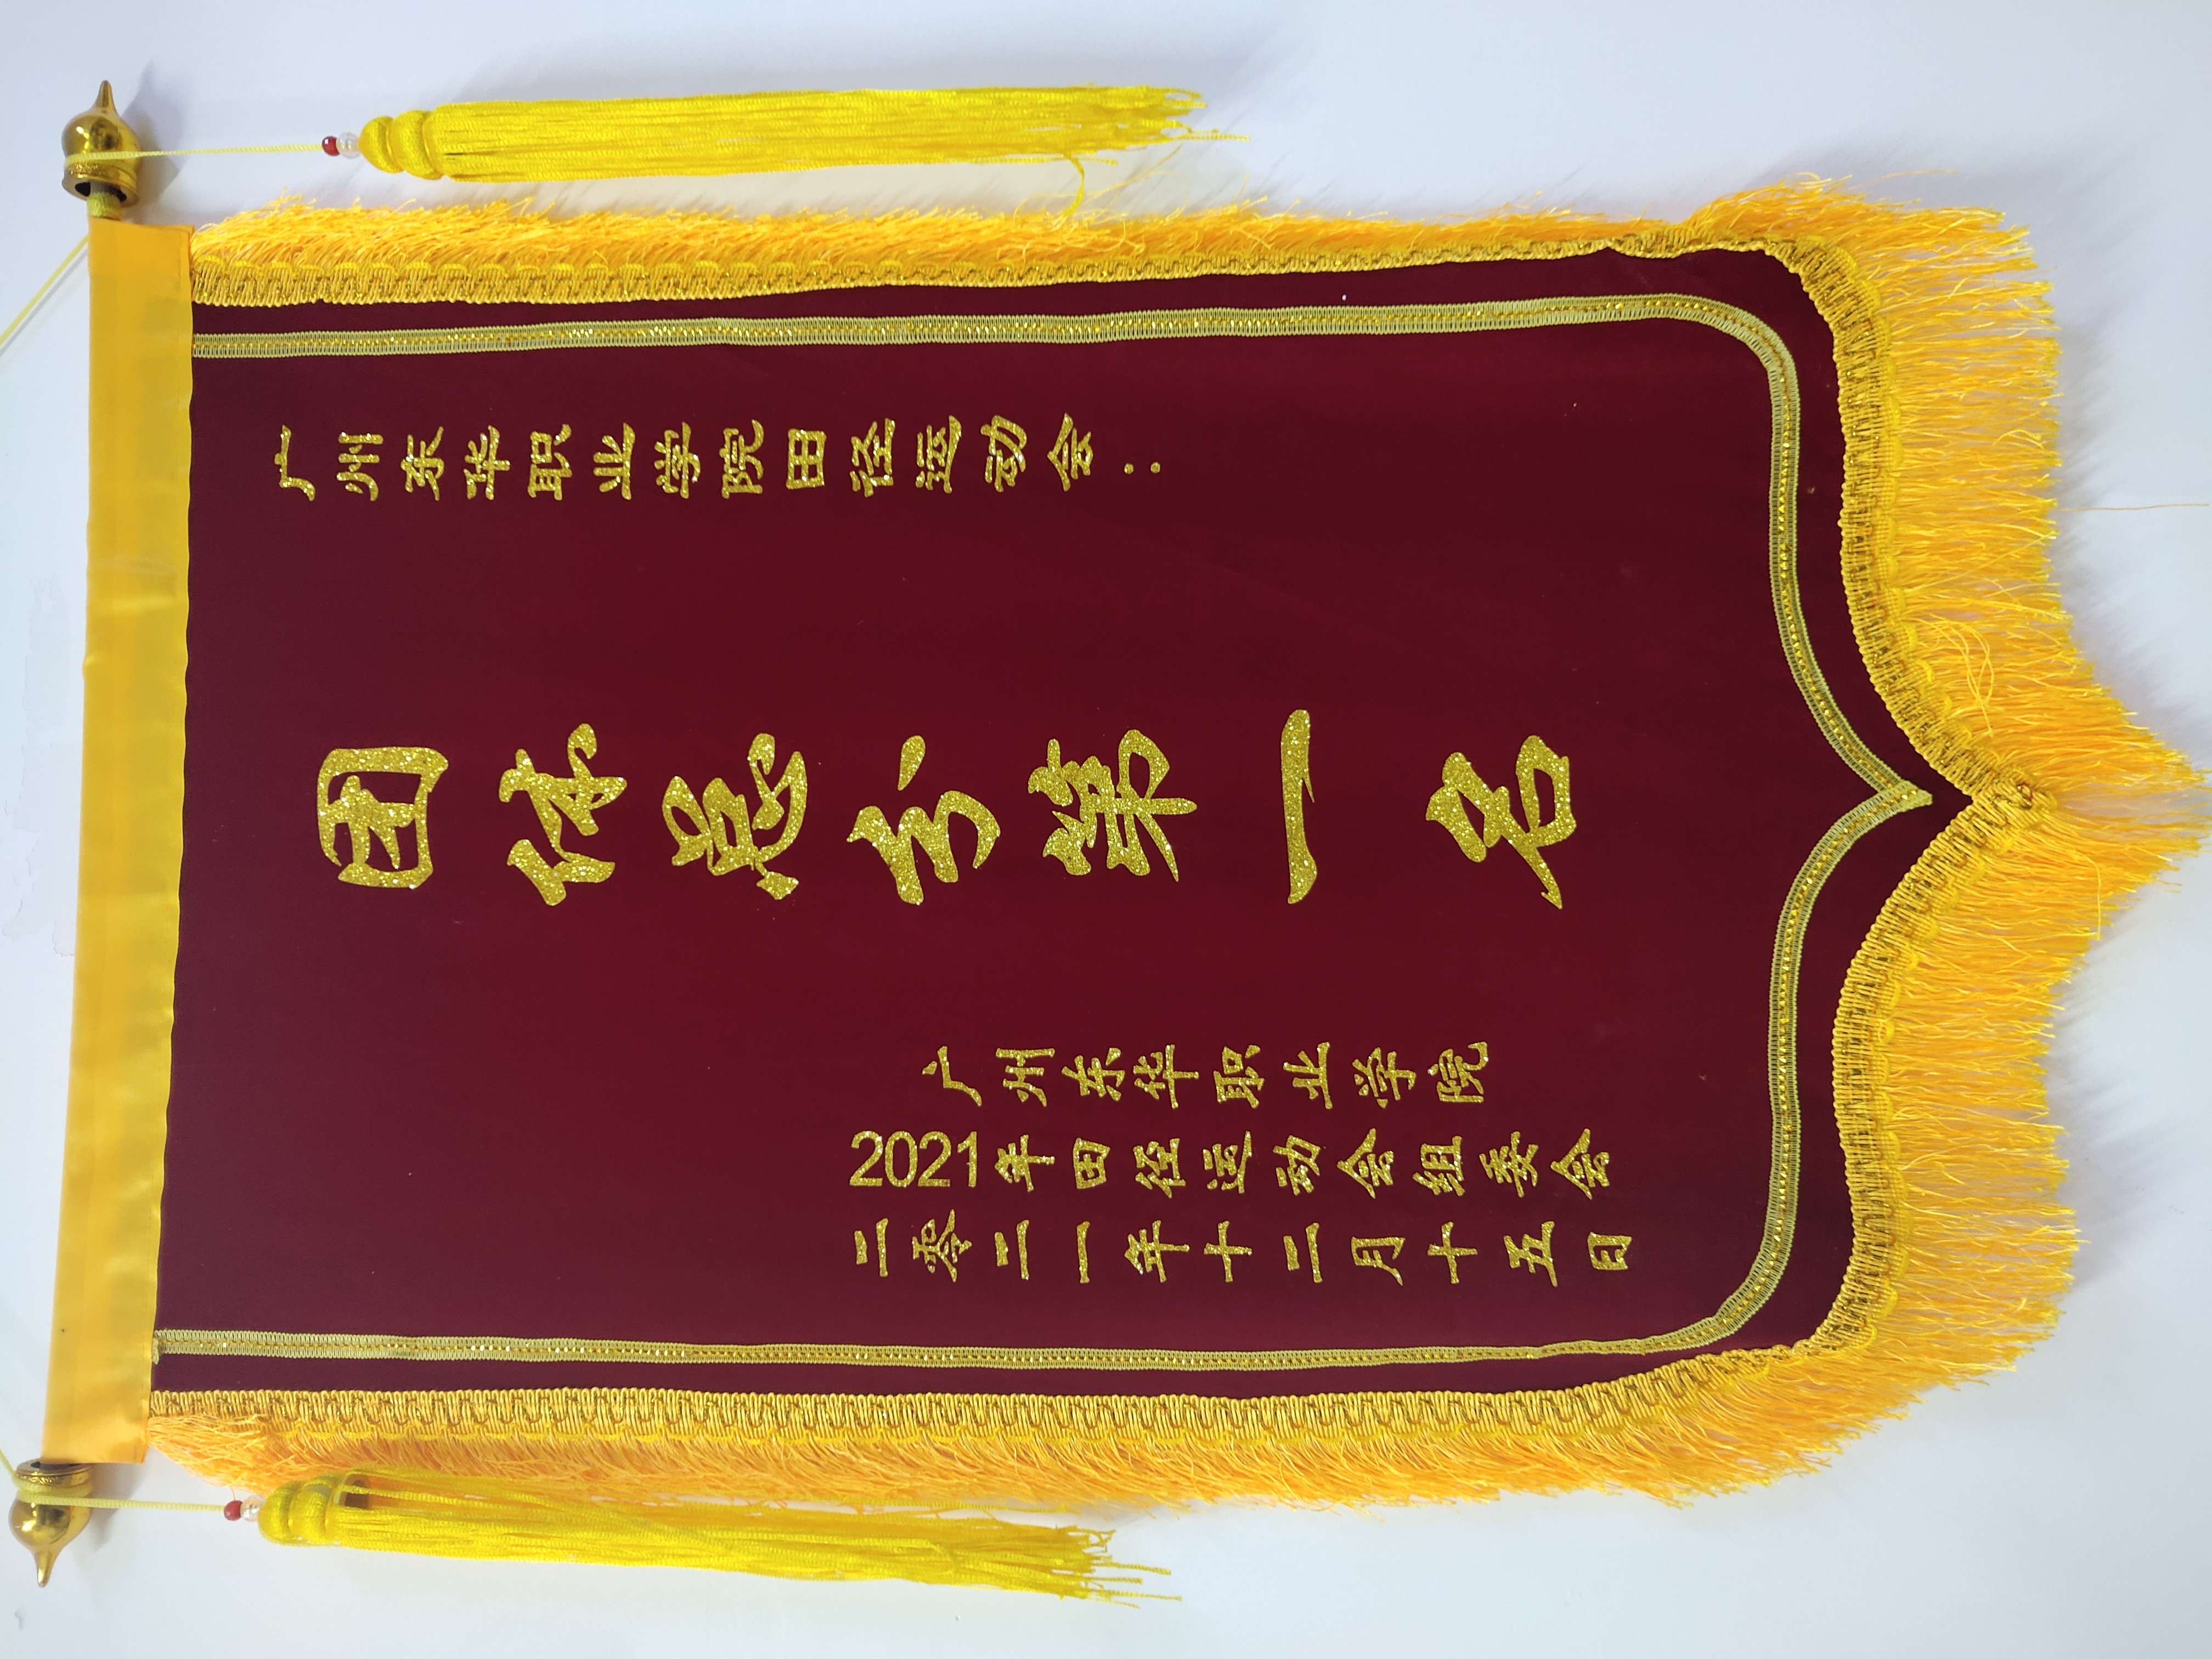 广州东华职业学院田径运动会：
团体总分第一名
广州东华职业学院
2021年田径运动会组委会
二零二一年十二月十五日